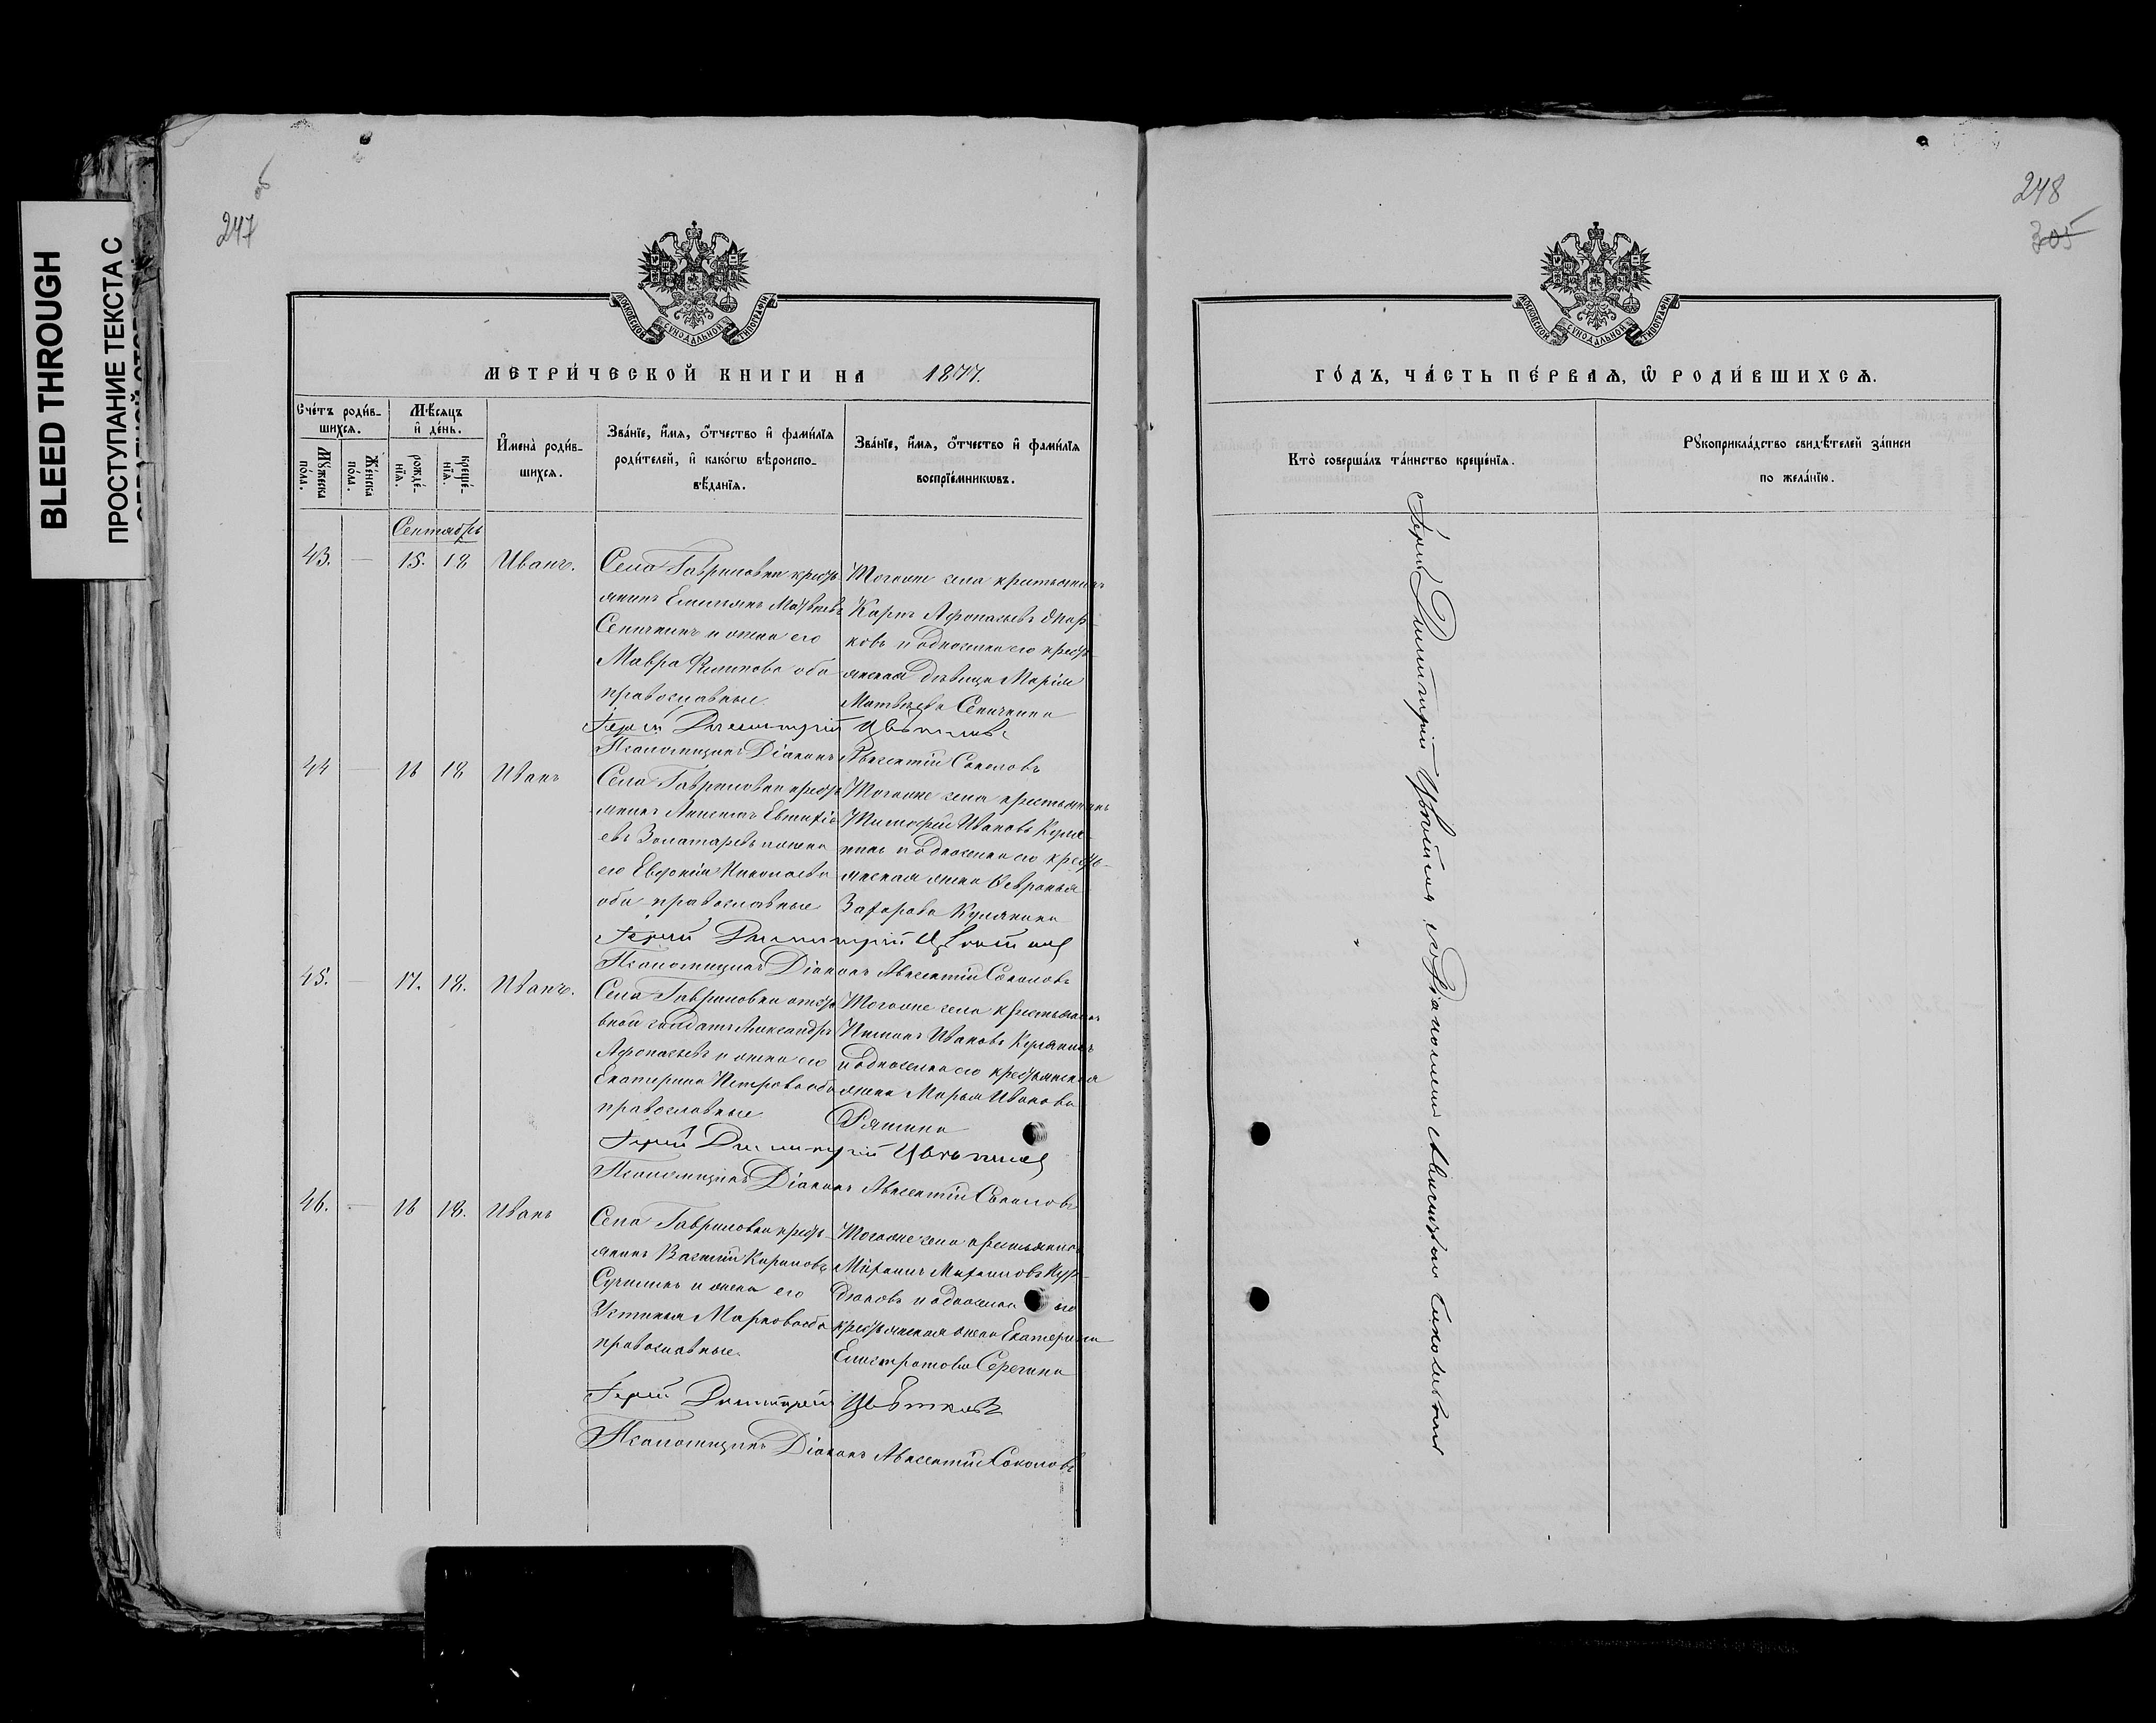 BLEED THROUGH
ПРОСТУПАНИЕ ТЕКСТА С
об
247
248
305
МОСКОВСКОЙ СѴНОДАЛЬНОЙ ТИПОГРАФІИ
МЕТРИ́ЧЕСКОЙ КНИГИ НА 1877.
Сче́тъ роди́в-
шихсѧ.
Мꙋ́жеска по́ла.
Же́нска по́ла.
Мѣ́сѧцъ
и҆ де́нь.
рожде́-нїѧ.
креще́-нїѧ.
И҆мена̀ роди́в-
шихсѧ.
Зва́нїе, и҆́мѧ, ѻ҆́тчество и҆ фами́лїѧ
роди́телей, и҆ како́гѡ вѣ́роиспо-
вѣ́данїѧ.
Зва́нїе, и҆́мѧ, ѻ҆́тчество и҆ фами́лїѧ
воспрїе́мникѡвъ.
Сентябрь
43. — 15. 18 Иванъ.
Села Гавриловки кресть-
янинъ Емельянъ Матвѣевъ
Сеничкинъ и жена его
Мавра Филипова оба
православные
Тогоже села крестьянинъ
Карпъ Афонасьевъ
ковъ и односелка его кресть-
янская дѣвица Марія
Матвѣева Сеничкина
Іерей Димитрій Цвѣтковъ
Псаломщикъ Діаконъ Авксентій Соколовъ
44 — 16 18 Иванъ
Села Гавриловки кресть-
янинъ Анисимъ Евтихі-
евъ Золатаревъ и жена
его Евфомія Николаева
оба православные
Тогоже села крестьянинъ
Тимофей Ивановъ Куля-
кинъ и односелка его кресть-
янская жена Февронья
Захарова Кулякина
Іерей Димитрій Цвѣтковъ
Псаломщикъ Діаконъ Авксентій Соколовъ
45. — 17. 18. Иванъ.
Села Гавриловки
солдатъ Александръ
Афонасьевъ и жена его
Екатерина Петрова оба
православные
Тогоже села крестьянинъ
Ивановъ Кулякинъ
и односелка его крестьянская
жена Марья Иванова
Ряшина
Іерей Димитрій Цвѣтковъ
Псаломщикъ Діаконъ Авксентій Соколовъ
46. — 16 18. Иванъ
Села Гавриловки кресть-
янинъ Василій Кириловъ
Сучилинъ и жена его
Устинья Маркова оба
православные.
Тогоже села крестьянинъ
Михаилъ Михаиловъ Кур-
дюковъ и односелка его
крестьянская жена Екатерина
Елистратова Серегина
Іерей Димитрій Цвѣтковъ
Псаломщикъ Діаконъ Авксентій Соколовъ
ГО́ДЪ, ЧА́СТЬ ПЕ́РВАѦ, Ѡ҆ РОДИ́ВШИХСѦ.
Кто̀ соверша́лъ та́инство креще́нїѧ.
Рꙋкоприкла́дство свидѣ́телей за́писи
по жела́нїю.
Іерей Димитрій Цвѣтковъ съ Діакономъ Авксентіемъ Соколовымъ